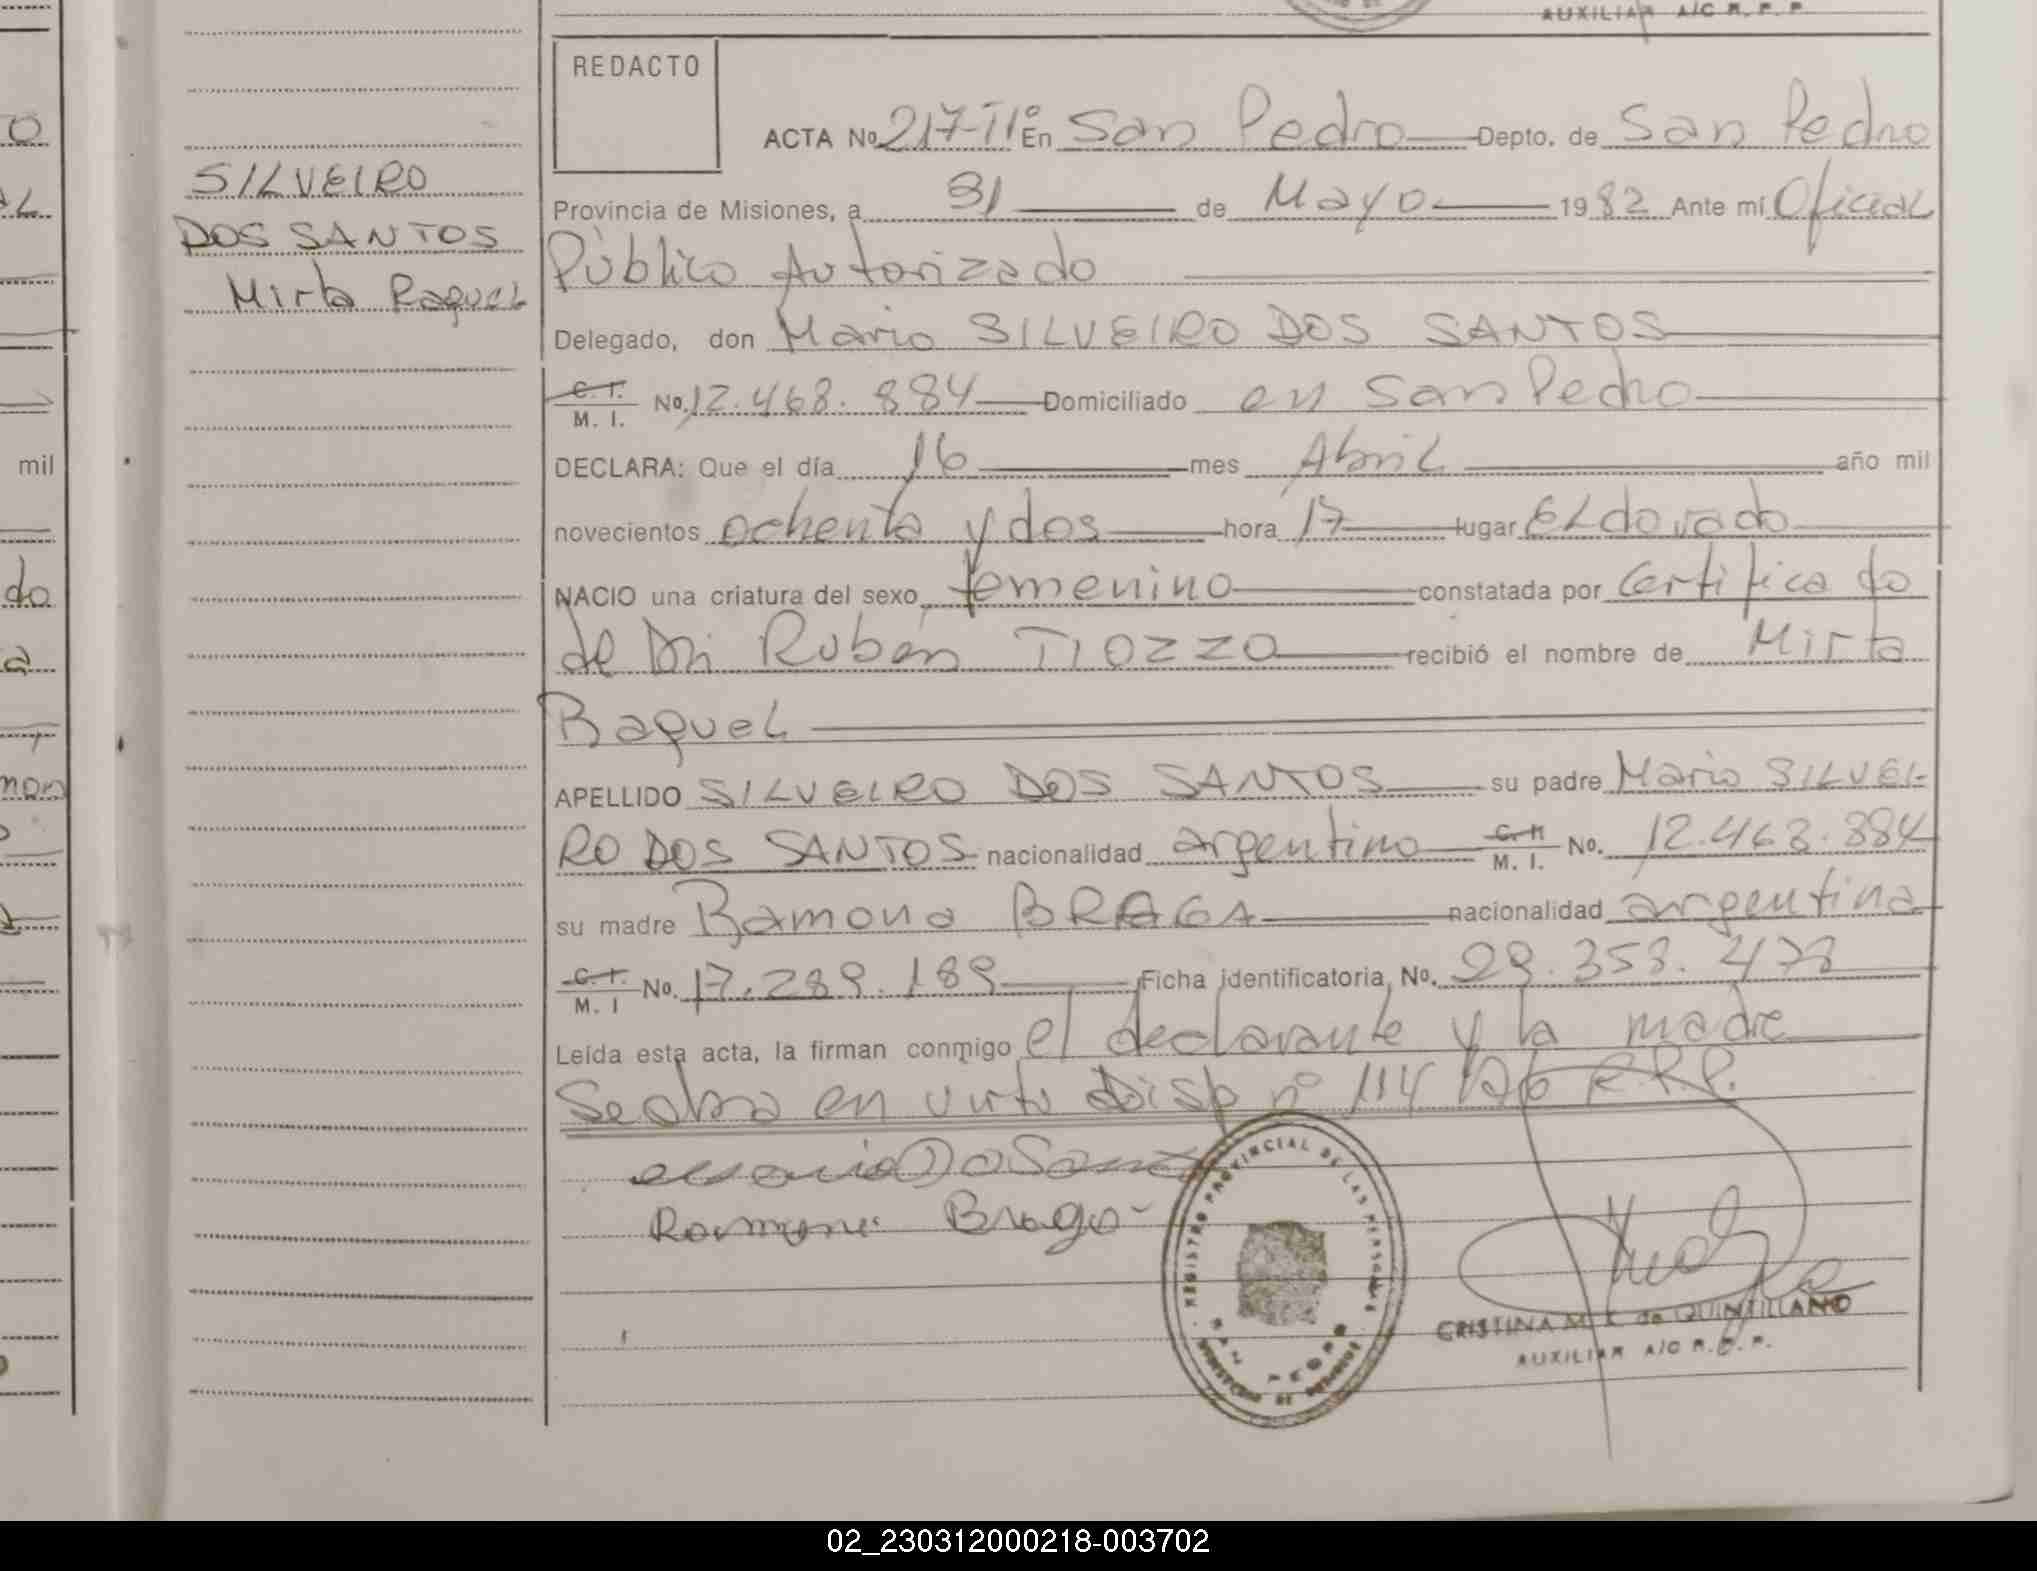 AUXILIAR A/C R. P. P.
REDACTO
ACTA No 217-IIº En San Pedro Depto. de San Pedro
SILVEIRO
DOS SANTOS
Mirta Raquel
Provincia de Misiones, a 31 de Mayo 1982 Ante mí Oficial
Público Autorizado
Delegado, don Mario SILVEIRO DOS SANTOS
C. I.
M. I. No. 12.468.884 Domiciliado en San Pedro
DECLARA: Que el día 16 mes Abril año mil
novecientos ochenta y dos hora 17 lugar ELdorado
NACIO una criatura del sexo femenino constatada por Certificado
de Dr. Rubén TIOZZO recibió el nombre de Mirta
Raquel
APELLIDO SILVEIRO DOS SANTOS su padre Mario SILVEI-
RO DOS SANTOS nacionalidad argentino M. I. No. 12.468.884
su madre Ramona BRAGA nacionalidad argentina
C. I.
M. I No. 17.289.189 Ficha identificatoria No. 29.358.478
Leída esta acta, la firman conmigo el declarante y la madre
Se labra en virtu Disp nº 114 R.P.P.
Ramona Braga
REGISTRO PROVINCIAL DE LAS PERSONAS
SAN PEDRO
CRISTINA M. K. de QUINTILLANO
AUXILIAR A/C R.P.P.
mil
do
a
02_230312000218-003702